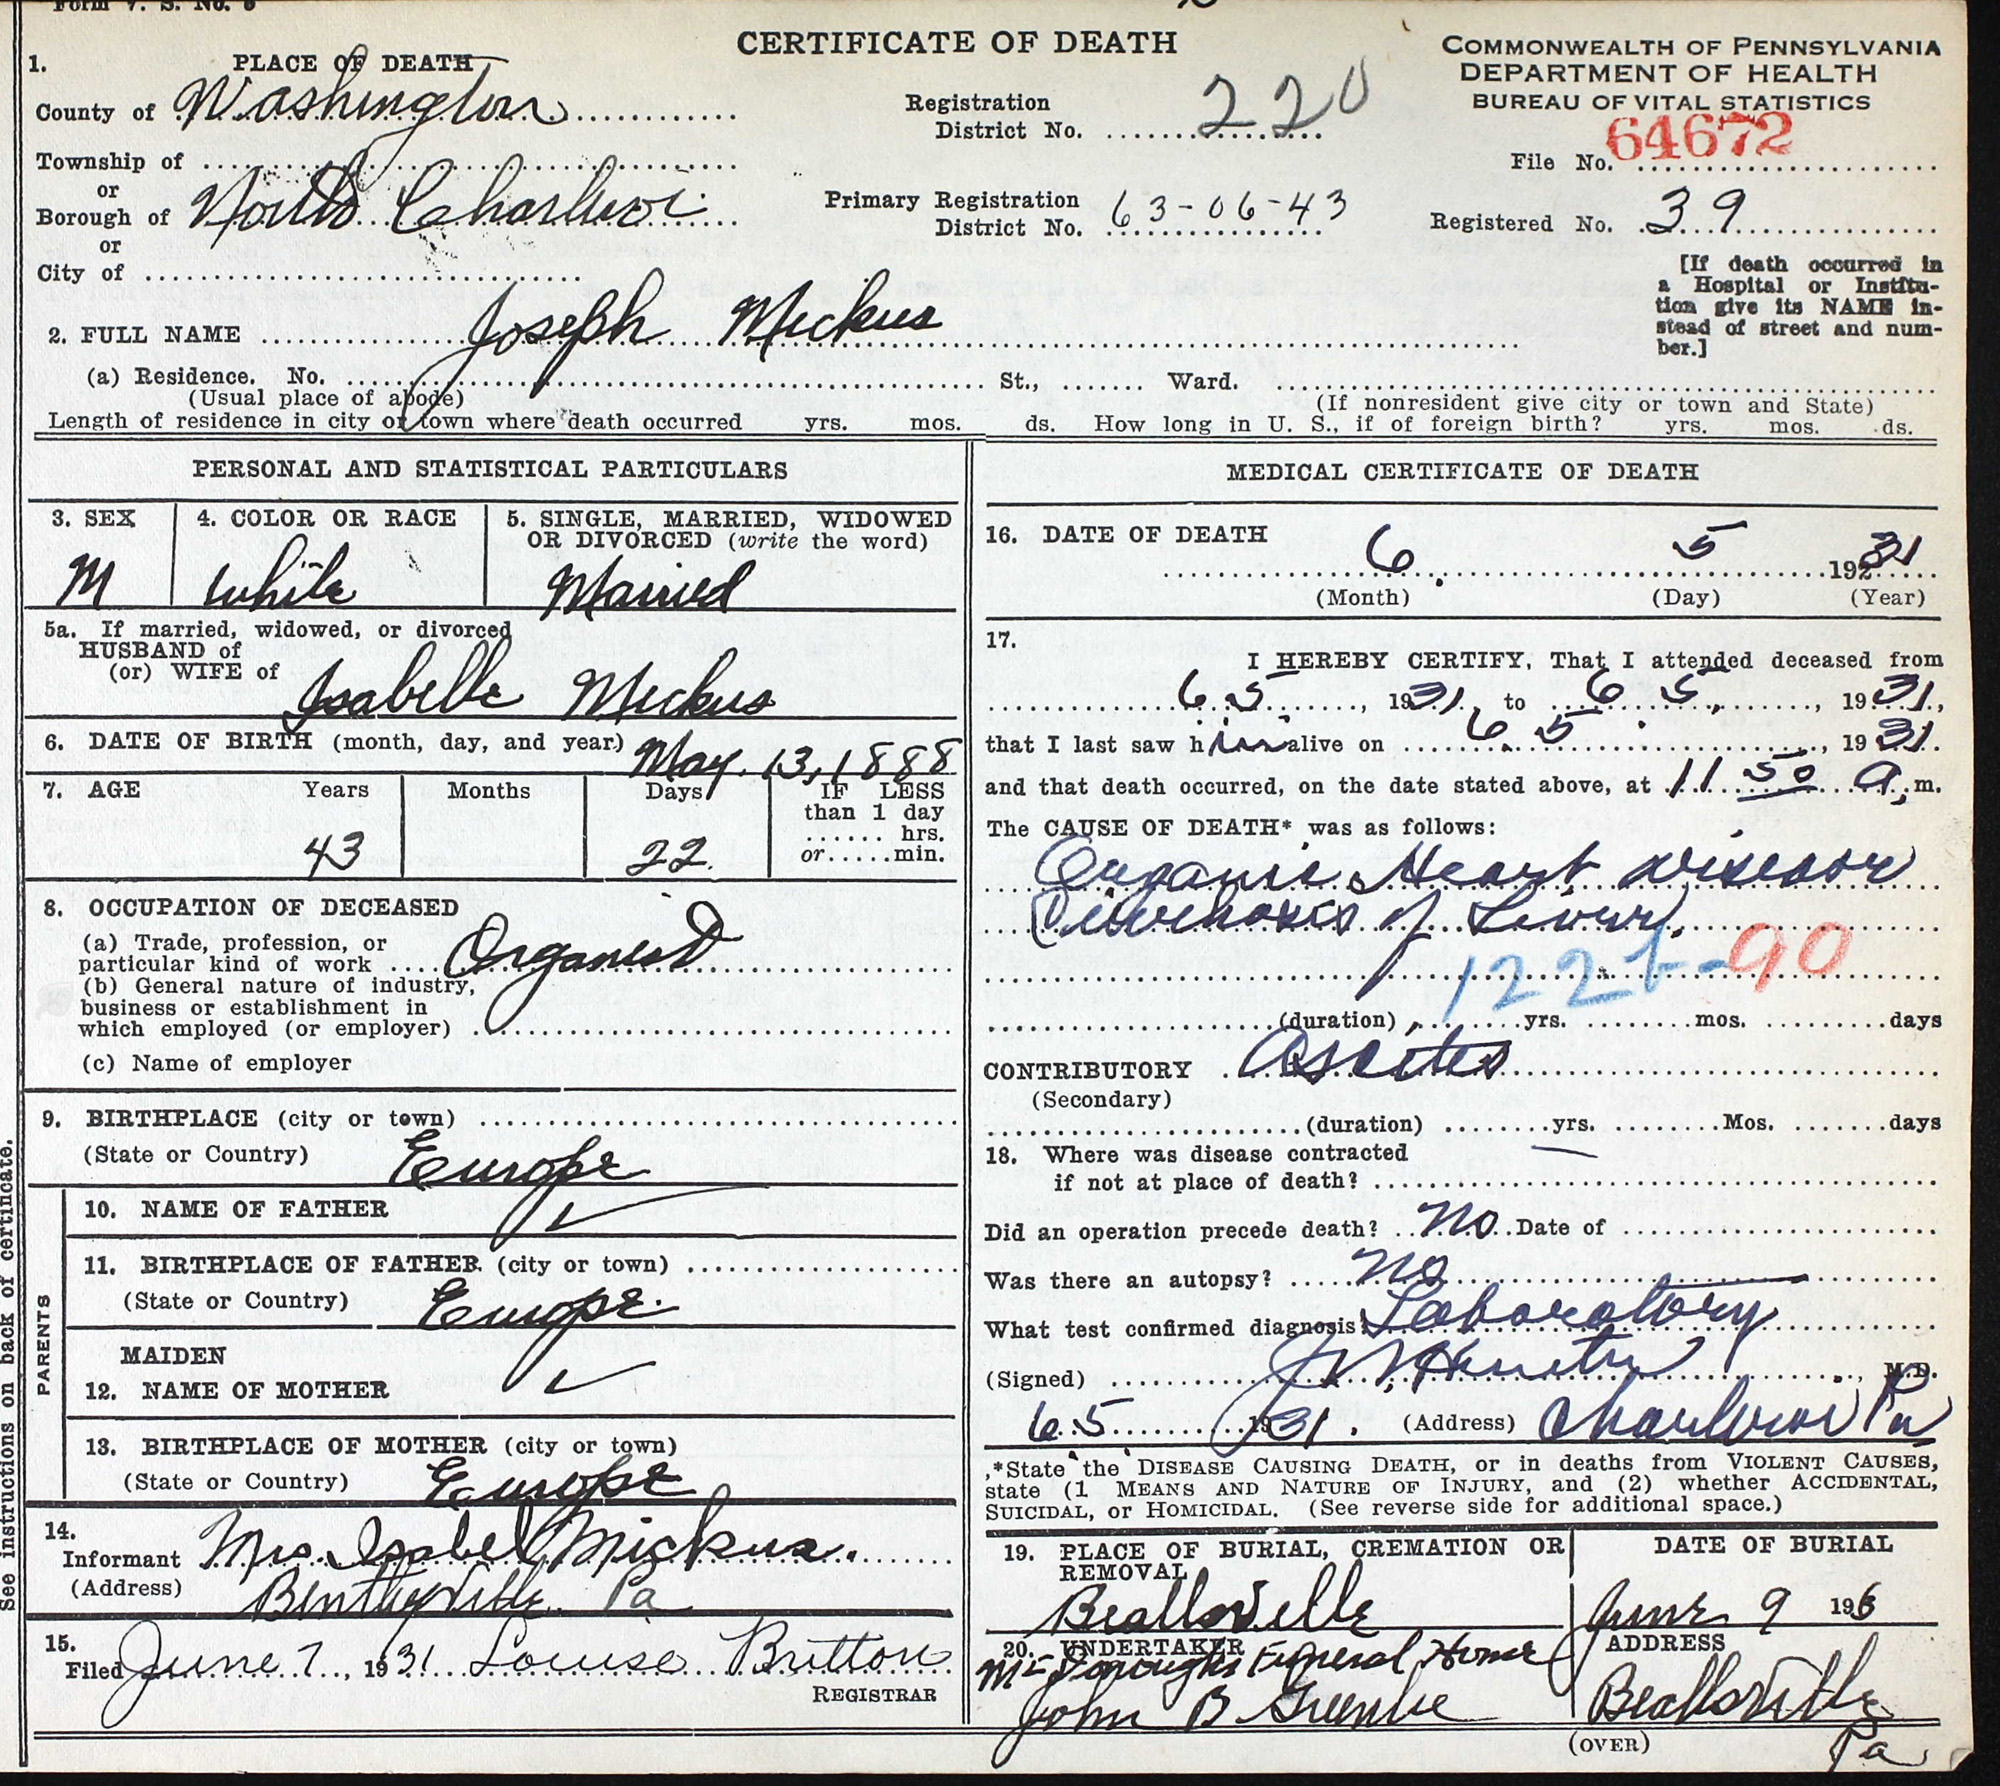 Form V. S. No. 5
CERTIFICATE OF DEATH
COMMONWEALTH OF PENNSYLVANIA
DEPARTMENT OF HEALTH
BUREAU OF VITAL STATISTICS
1. PLACE OF DEATH
County of Washington
Registration District No. 220
File No. 64672
Township of
or
Borough of North Charleroi
Primary Registration District No. 63-06-43
Registered No. 39
or
City of
[If death occurred in
a Hospital or Institu-
tion give its NAME in-
stead of street and num-
ber.]
2. FULL NAME Joseph Mickus
(a) Residence. No. St., Ward.
(Usual place of abode) (If nonresident give city or town and State)
Length of residence in city or town where death occurred yrs. mos. ds. How long in U. S., if of foreign birth? yrs. mos. ds.
PERSONAL AND STATISTICAL PARTICULARS
3. SEX
M
4. COLOR OR RACE
White
5. SINGLE, MARRIED, WIDOWED
OR DIVORCED (write the word)
Married
5a. If married, widowed, or divorced
HUSBAND of
(or) WIFE of Isabelle Mickus
6. DATE OF BIRTH (month, day, and year) May. 13, 1888
7. AGE Years Months Days IF LESS
than 1 day
hrs.
or min.
43 22.
8. OCCUPATION OF DECEASED
(a) Trade, profession, or
particular kind of work Organist
(b) General nature of industry,
business or establishment in
which employed (or employer)
(c) Name of employer
9. BIRTHPLACE (city or town)
(State or Country) Europe
PARENTS
10. NAME OF FATHER ✓
11. BIRTHPLACE OF FATHER (city or town)
(State or Country) Europe.
MAIDEN
12. NAME OF MOTHER ✓
13. BIRTHPLACE OF MOTHER (city or town)
(State or Country) Europe
14.
Informant Mrs. Isabel Mickus.
(Address) Bentleyville Pa
15.
Filed June 7, 1931 Louise Britton
REGISTRAR
See instructions on back of certificate.
MEDICAL CERTIFICATE OF DEATH
16. DATE OF DEATH
6 5 19231
(Month) (Day) (Year)
17.
I HEREBY CERTIFY, That I attended deceased from
6 5, 1931, to 6 5, 1931,
that I last saw him alive on 6 5, 1931.
and that death occurred, on the date stated above, at 11 50 A.m.
The CAUSE OF DEATH* was as follows:
Organic Heart disease
Cirrhosis of Liver.
122b-90
(duration) yrs. mos. days
CONTRIBUTORY Ascites
(Secondary)
(duration) yrs. Mos. days
18. Where was disease contracted
if not at place of death?
Did an operation precede death? No Date of
Was there an autopsy? No
What test confirmed diagnosis? Laboratory
(Signed) M.D.
6 5 1931. (Address) Charleroi Pa
*State the DISEASE CAUSING DEATH, or in deaths from VIOLENT CAUSES,
state (1 MEANS AND NATURE OF INJURY, and (2) whether ACCIDENTAL,
SUICIDAL, or HOMICIDAL. (See reverse side for additional space.)
19. PLACE OF BURIAL, CREMATION OR
REMOVAL
Beallsville
DATE OF BURIAL
June 9 193
20. UNDERTAKER
Funeral Home
John B
ADDRESS
Beallsville
Pa
(OVER)